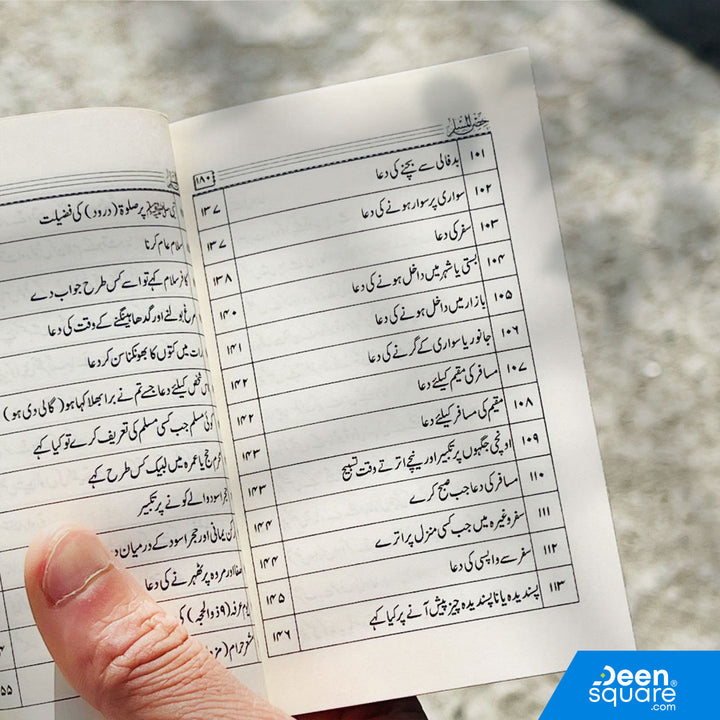 حصن المسلم
{۱۸۰}
۱۰۱ بدفالی سے بچنے کی دعا ۱۳۷
۱۰۲ سواری پر سوار ہونے کی دعا ۱۳۷
۱۰۳ سفر کی دعا ۱۳۸
۱۰۴ بستی یا شہر میں داخل ہونے کی دعا ۱۴۰
۱۰۵ بازار میں داخل ہونے کی دعا ۱۴۱
۱۰۶ جانور یا سواری کے گرنے کی دعا ۱۴۲
۱۰۷ مسافر کی مقیم کیلئے دعا ۱۴۲
۱۰۸ مقیم کی مسافر کیلئے دعا ۱۴۳
۱۰۹ اونچی جگہوں پر تکبیر اور نیچے اترتے وقت تسبیح ۱۴۳
۱۱۰ مسافر کی دعا جب صبح کرے ۱۴۴
۱۱۱ سفر وغیرہ میں جب کسی منزل پر اترے ۱۴۴
۱۱۲ سفر سے واپسی کی دعا ۱۴۵
۱۱۳ پسندیدہ یا ناپسندیدہ چیز پیش آنے پر کیا کہے ۱۴۶
نبی ﷺ پر صلوۃ (درود) کی فضیلت
سلام عام کرنا
کافر سلام کہے تو اسے کس طرح جواب دے
بولنے اور گدھا ہینگنے کے وقت کی دعا
رات میں کتوں کا بھونکنا سن کر دعا
شخص کیلئے دعا جسے تم نے برا بھلا کہا ہو (گالی دی ہو)
کوئی مسلم جب کسی مسلم کی تعریف کرے تو کیا کہے
حج یا عمرہ میں لبیک کس طرح کہے
اسود والے کونے پر تکبیر
یمانی اور حجر اسود کے درمیان
صفا اور مروہ پر ٹھہرنے کی دعا
عرفہ (۹ ذوالحجہ) کی
حرام
Deen
square®
.com